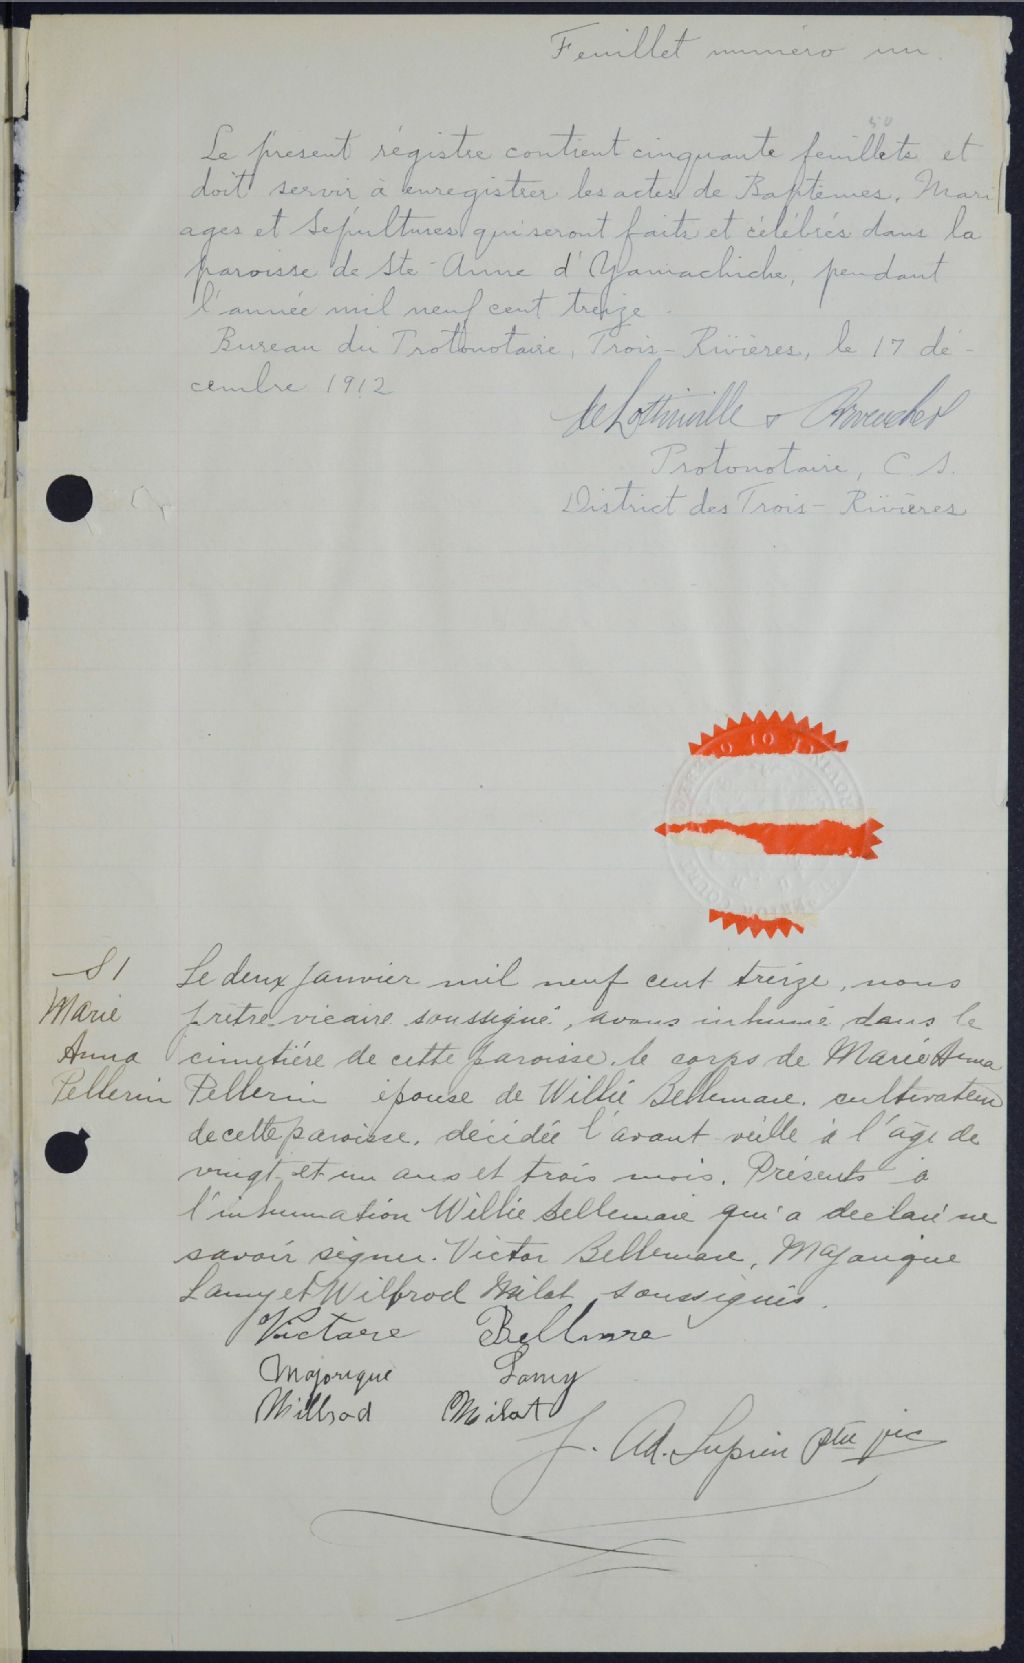 Feuillet numéro un.
50
Le présent régistre contient cinquante feuillets et
doit servir à enregistrer les actes de Baptêmes, Mari
ages et Sépultures qui seront faits et célébrés dans la
paroisse de Ste-Anne d'Yamachiche, pendant
l'année mil neuf cent treize.
Bureau du Protonotaire, Trois-Rivières, le 17 dé-
cembre 1912
Protonotaire, C. S.
District des Trois-Rivières
S 1
Marie
Anna
Pellerin
Le deux Janvier mil neuf cent treize, nous
prêtre-vicaire soussigné, avons inhumé dans le
cimetiére de cette paroisse, le corps de Marie Anna
Pellerin épouse de Willié Bellemare, cultivateur
de cette paroisse, décédée l'avant veille à l'âge de
vingt-et-un ans et trois mois. Présents à
l'inhumation Willie Bellemare qui a déclaré ne
savoir signer. Victor Bellemare, Majorique
Lamy et Wilfrod Milot soussignés.
Victaere Bellmare
Majorique Lamy
Willrod Milot
J. Ad. Lupien ptre vic